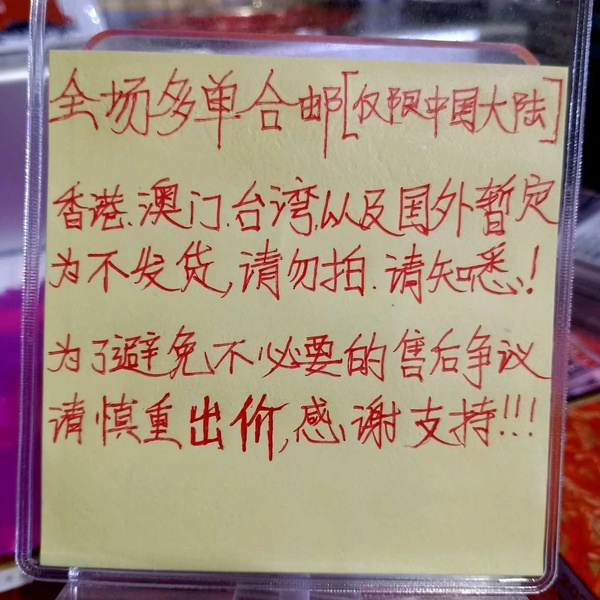 全场多单合邮[仅限中国大陆]
香港.澳门.台湾.以及国外暂定
为不发货,请勿拍.请知悉!
为了避免不必要的售后争议
请慎重出价,感谢支持!!!